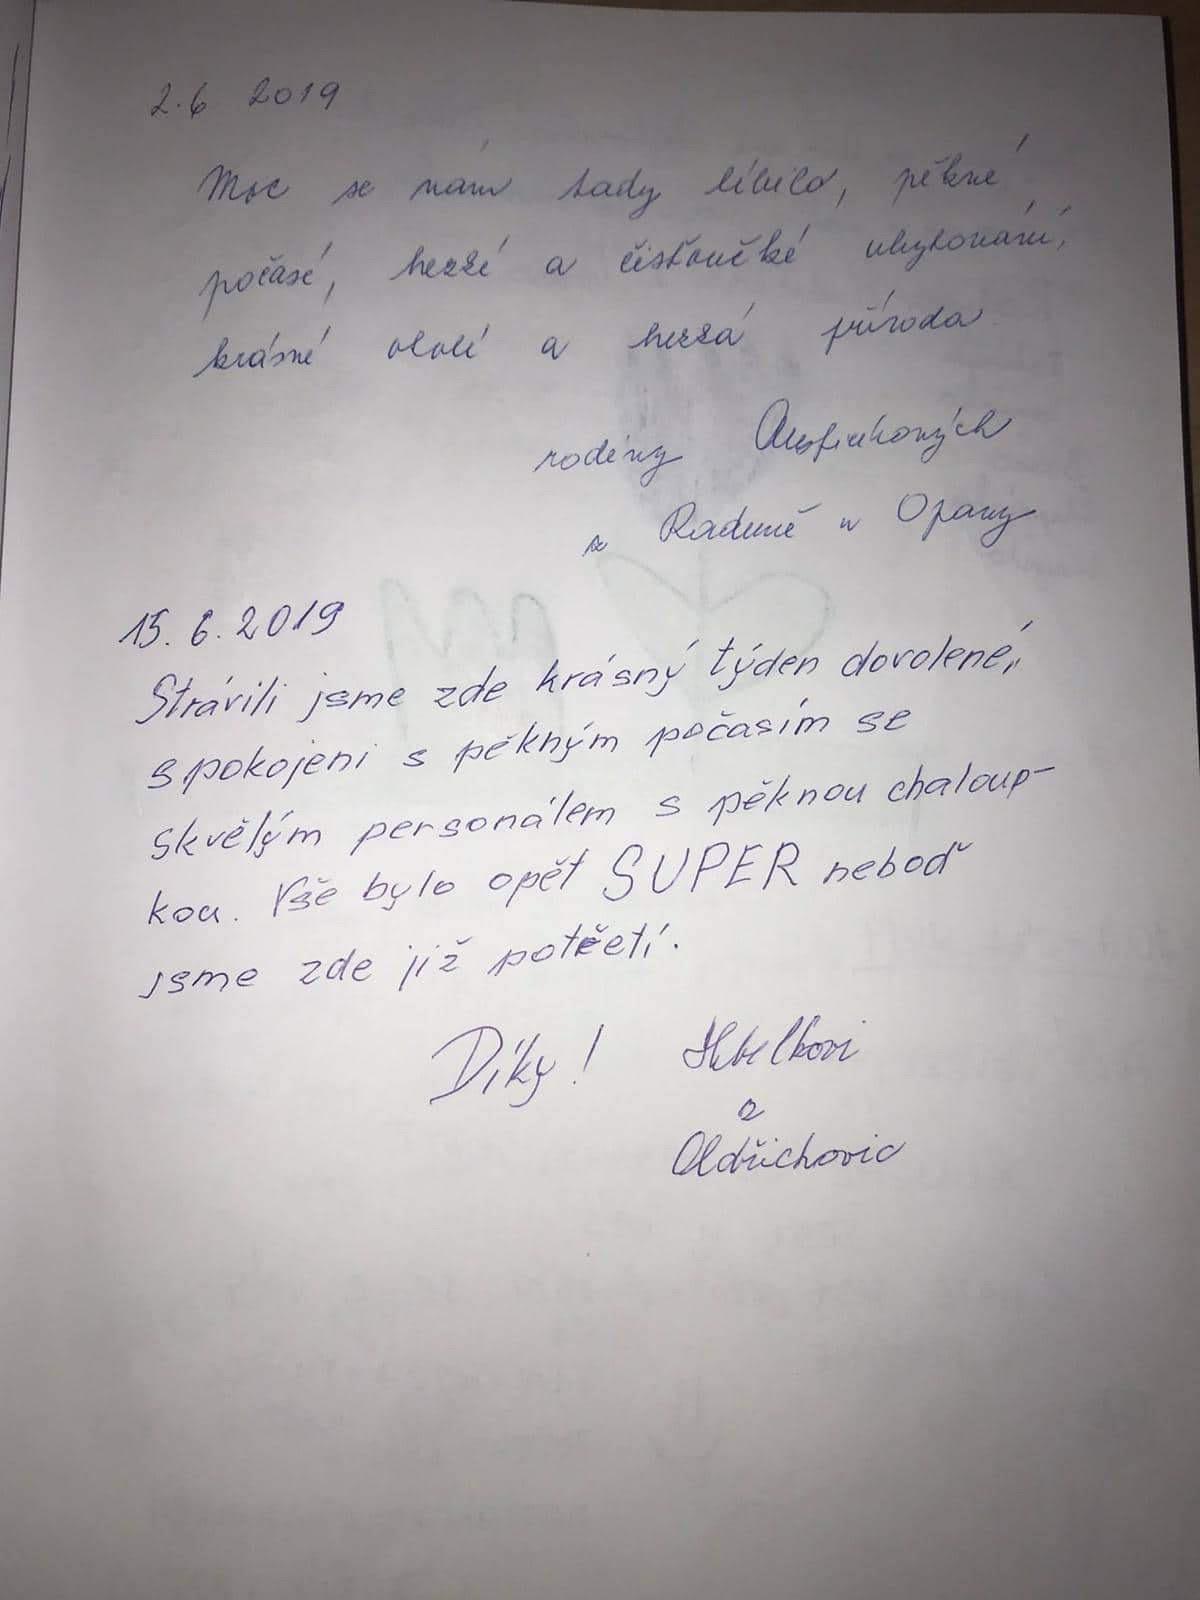 2.6 2019
Moc se nám tady líbilo, pěkné
počásí, hezké a čisťoučké ubytování,
krásné okolí a hezká příroda
rodiny
z Raduně u Opavy
15.6.2019
Strávili jsme zde krásný týden dovolené,
spokojeni s pěkným počasím se
skvělým personálem s pěknou chaloup-
kou. Vše bylo opět SUPER neboď
jsme zde již potřetí.
Díky!
z
Oldřichovic